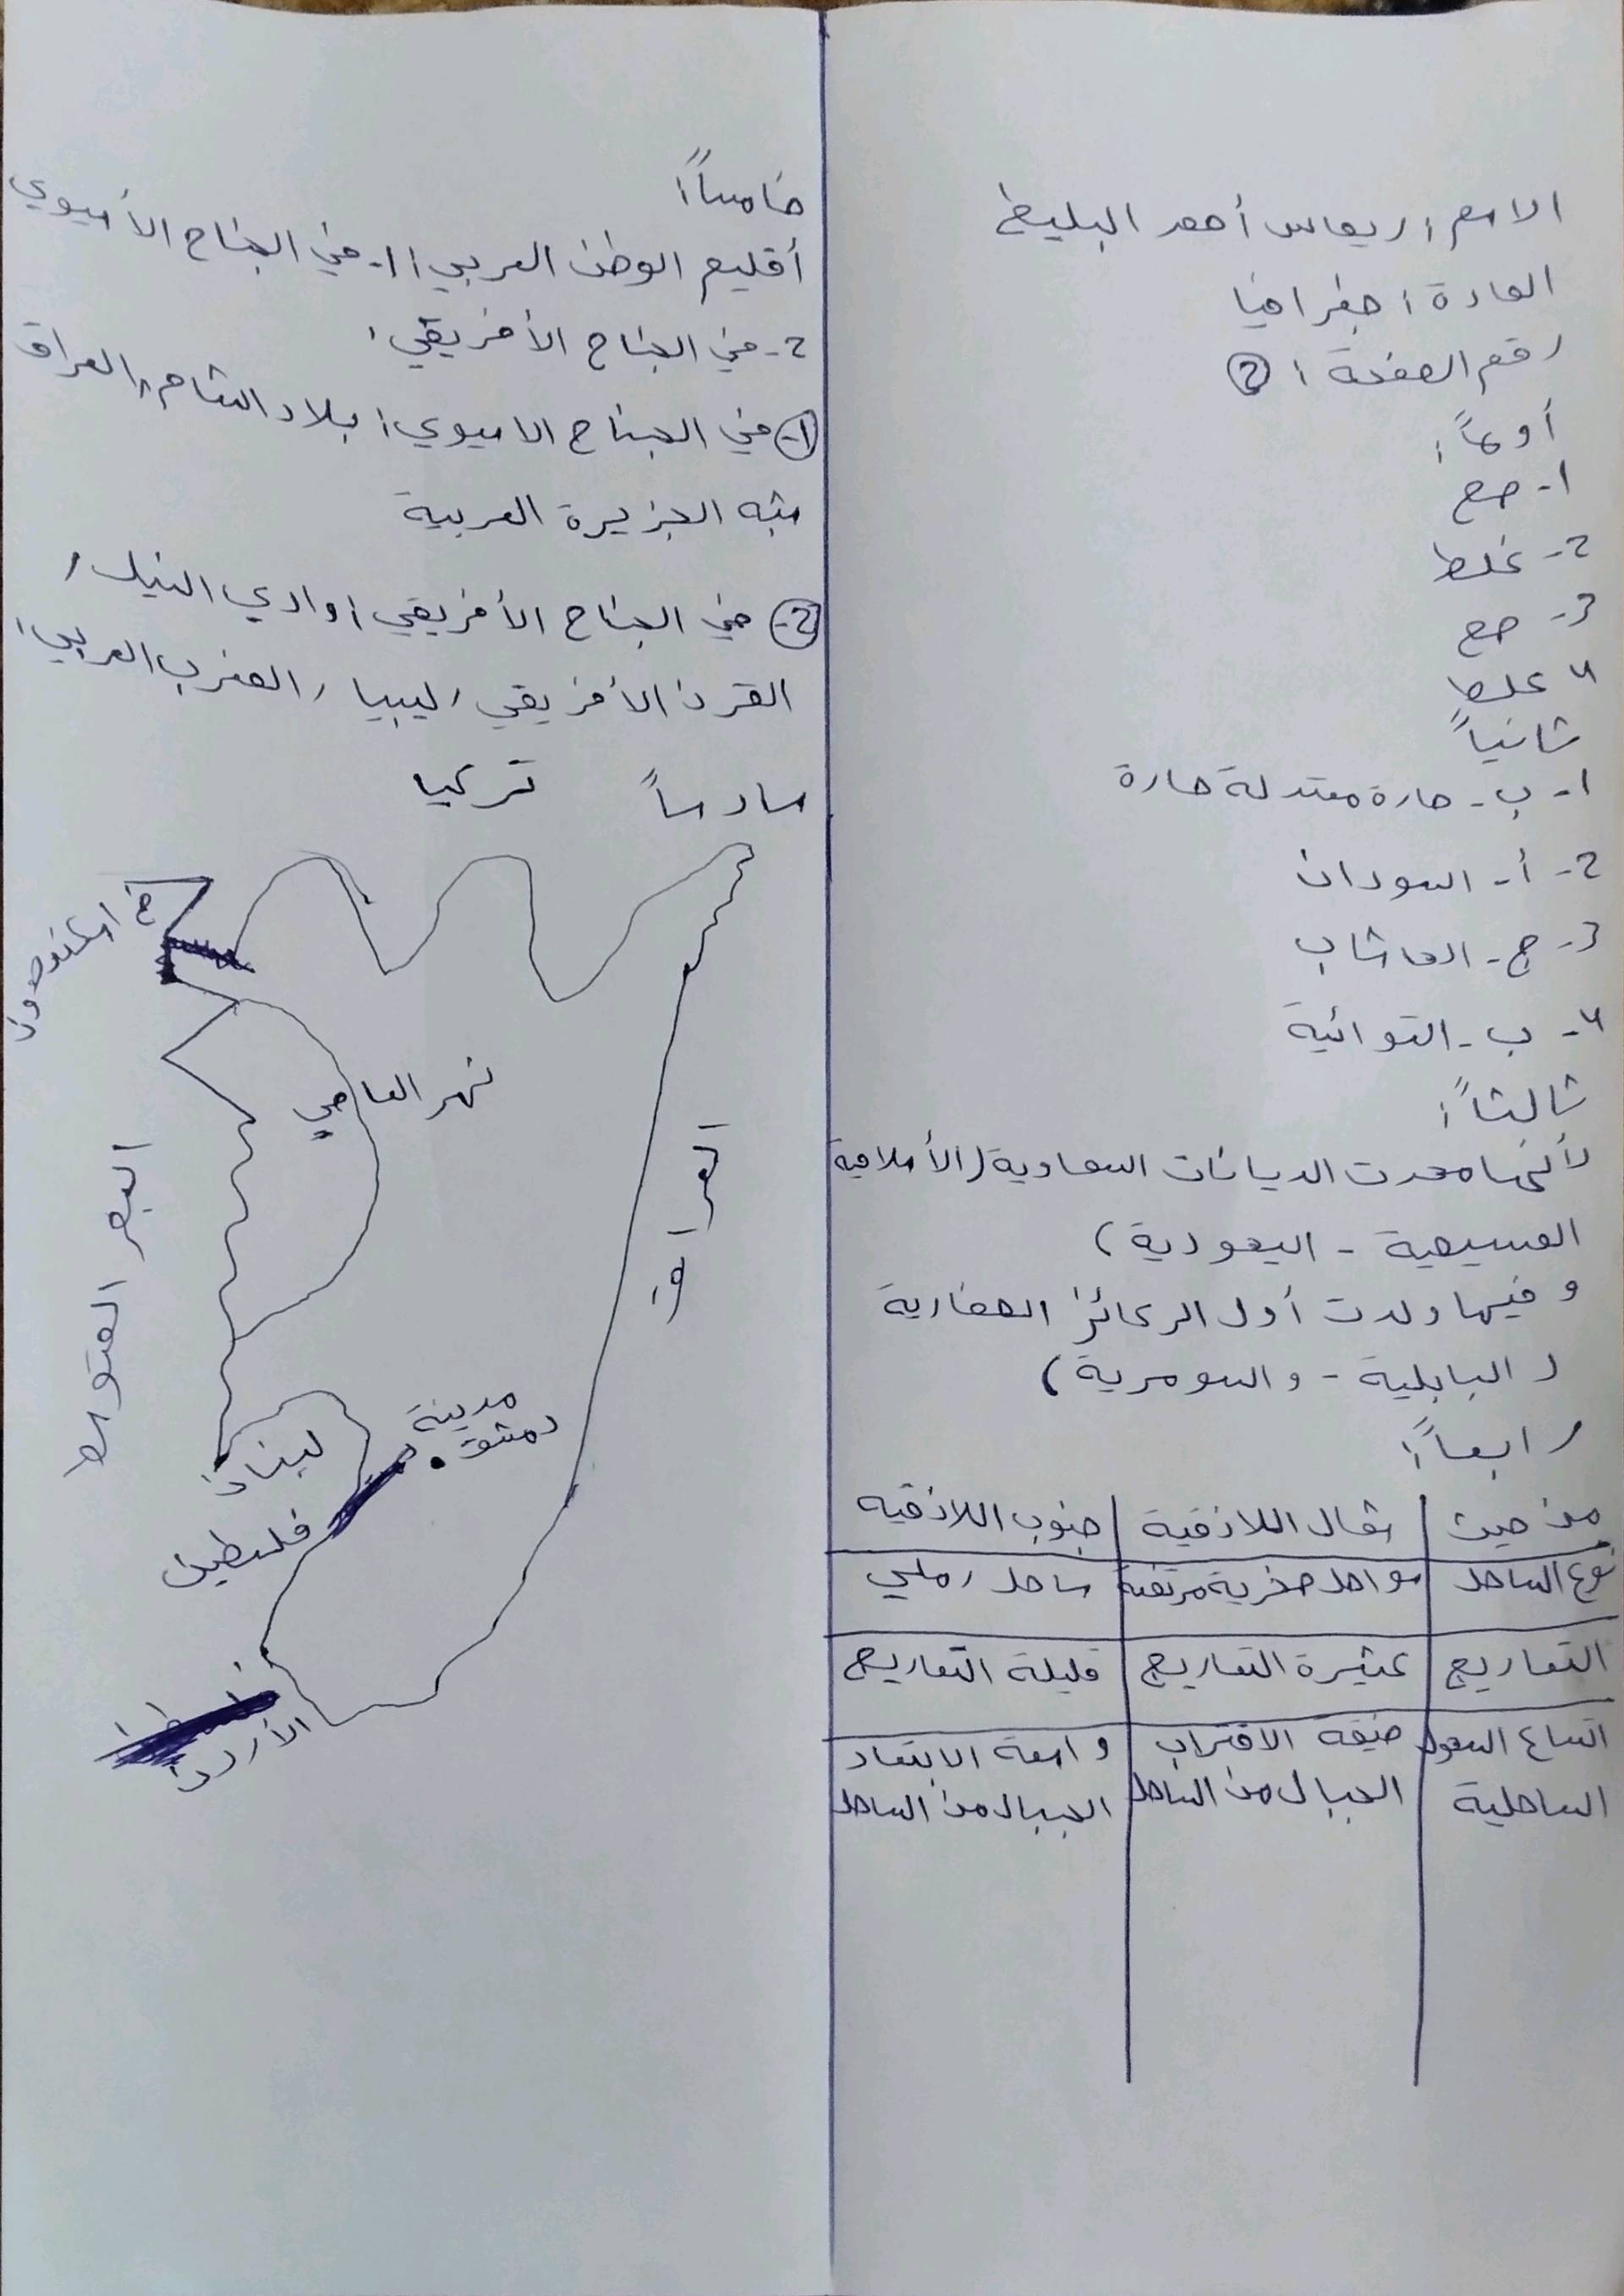 الاسم: ريماس أحمد البليط
المادة: جغرافيا
رقم الصفحة: 2
أولاً:
1- صح
2- غلط
3- صح
4 غلط
ثانياً
1- ب- حارة معتدلة حارة
2- أ- السودان
3- ج- الهاشاب
4- ب- التوائية
ثالثاً:
لأنها مهدت الديانات السماوية (الأسلامية
المسيحية - اليهودية)
وفيها ولدت أول الركائز الحضارية
(البابلية - والسومرية)
رابعاً:
من حيث | شمال اللاذقية | جنوب اللاذقيه
نوع الساحل | سواحل صخرية مرتفعة | ساحل رملي
التعاريج | كثيرة التعاريج | قليلة التعاريج
اتساع السهول | ضيقة الاقتراب | واسعة الابتعاد
الساحلية | الجبال من الساحل | الجبال من الساحل
خامساً:
أقليم الوطن العربي: 1- في الجناح الأسيوي
2- في الجناح الأفريقي:
1- في الجناح الاسيوي: بلاد الشام، العراق
شبه الجزيرة العربية
2- في الجناح الأفريقي: وادي النيل،
القرن الأفريقي، ليبيا، المغرب العربي:
سادساً
تركيا
خ اسكندرون
نهر العاصي
البحر المتوسط
العراق
مدينة
دمشق
لبنان
فلسطين
الأردن